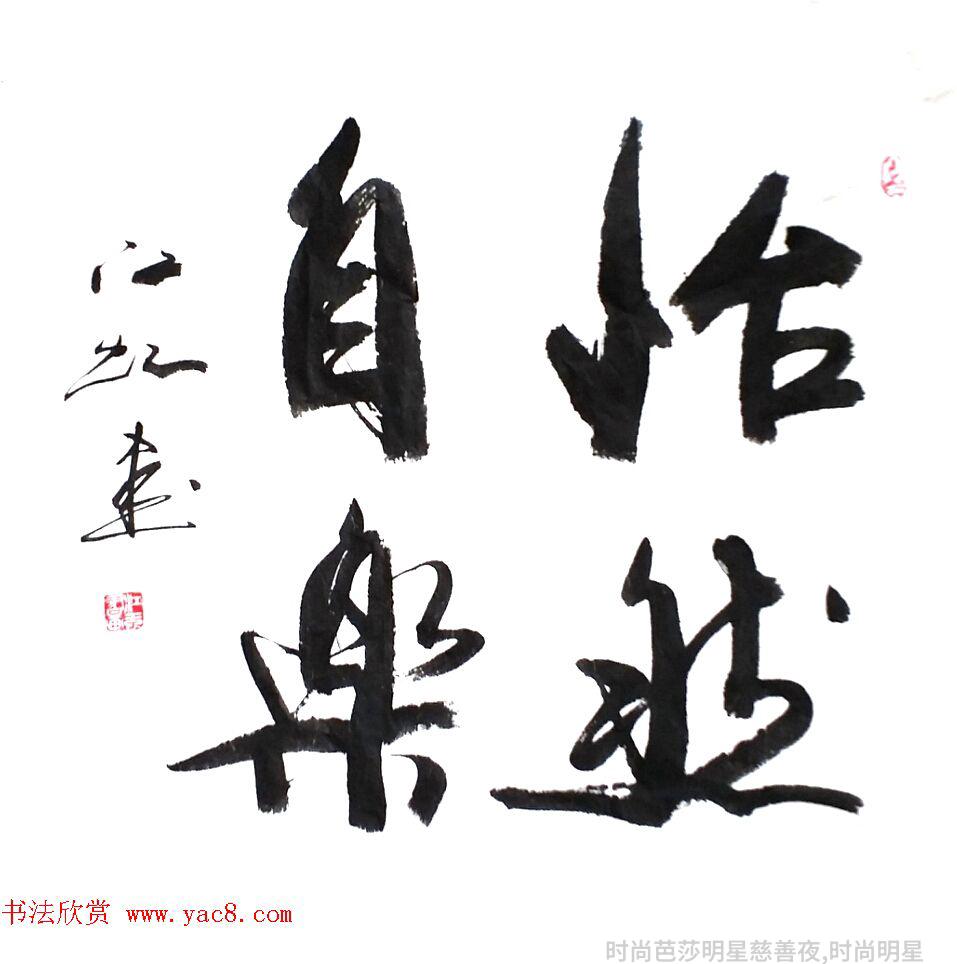 怡然
自樂
江虹書
书法欣赏 www.yac8.com
时尚芭莎明星慈善夜,时尚明星